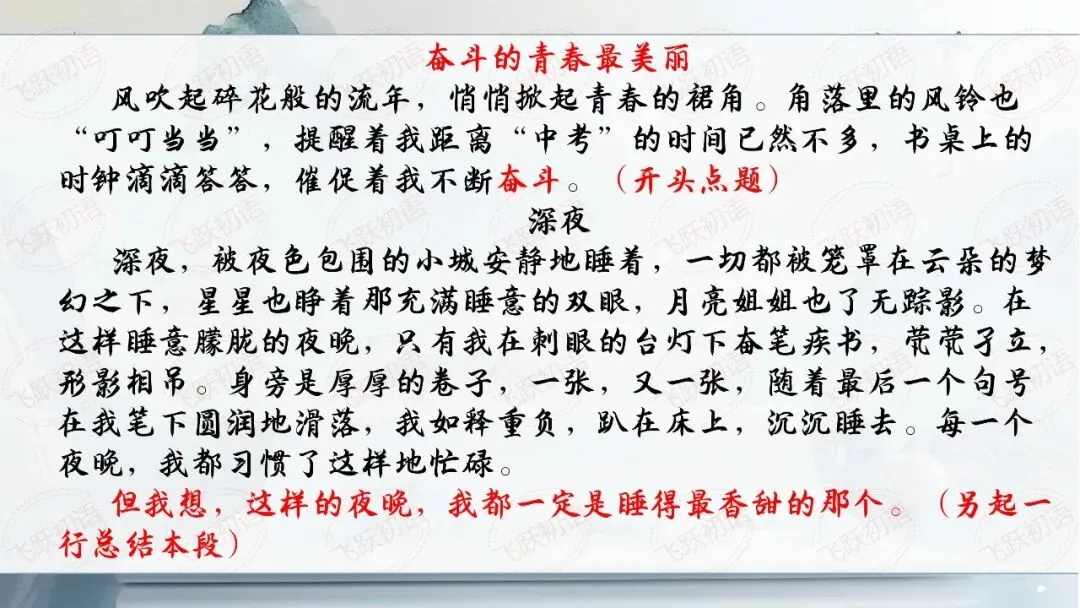 奋斗的青春最美丽
风吹起碎花般的流年，悄悄掀起青春的裙角。角落里的风铃也
“叮叮当当”，提醒着我距离“中考”的时间已然不多，书桌上的
时钟滴滴答答，催促着我不断奋斗。（开头点题）
深夜
深夜，被夜色包围的小城安静地睡着，一切都被笼罩在云朵的梦
幻之下，星星也睁着那充满睡意的双眼，月亮姐姐也了无踪影。在
这样睡意朦胧的夜晚，只有我在刺眼的台灯下奋笔疾书，茕茕孑立，
形影相吊。身旁是厚厚的卷子，一张，又一张，随着最后一个句号
在我笔下圆润地滑落，我如释重负，趴在床上，沉沉睡去。每一个
夜晚，我都习惯了这样地忙碌。
但我想，这样的夜晚，我都一定是睡得最香甜的那个。（另起一
行总结本段）
飞跃初语